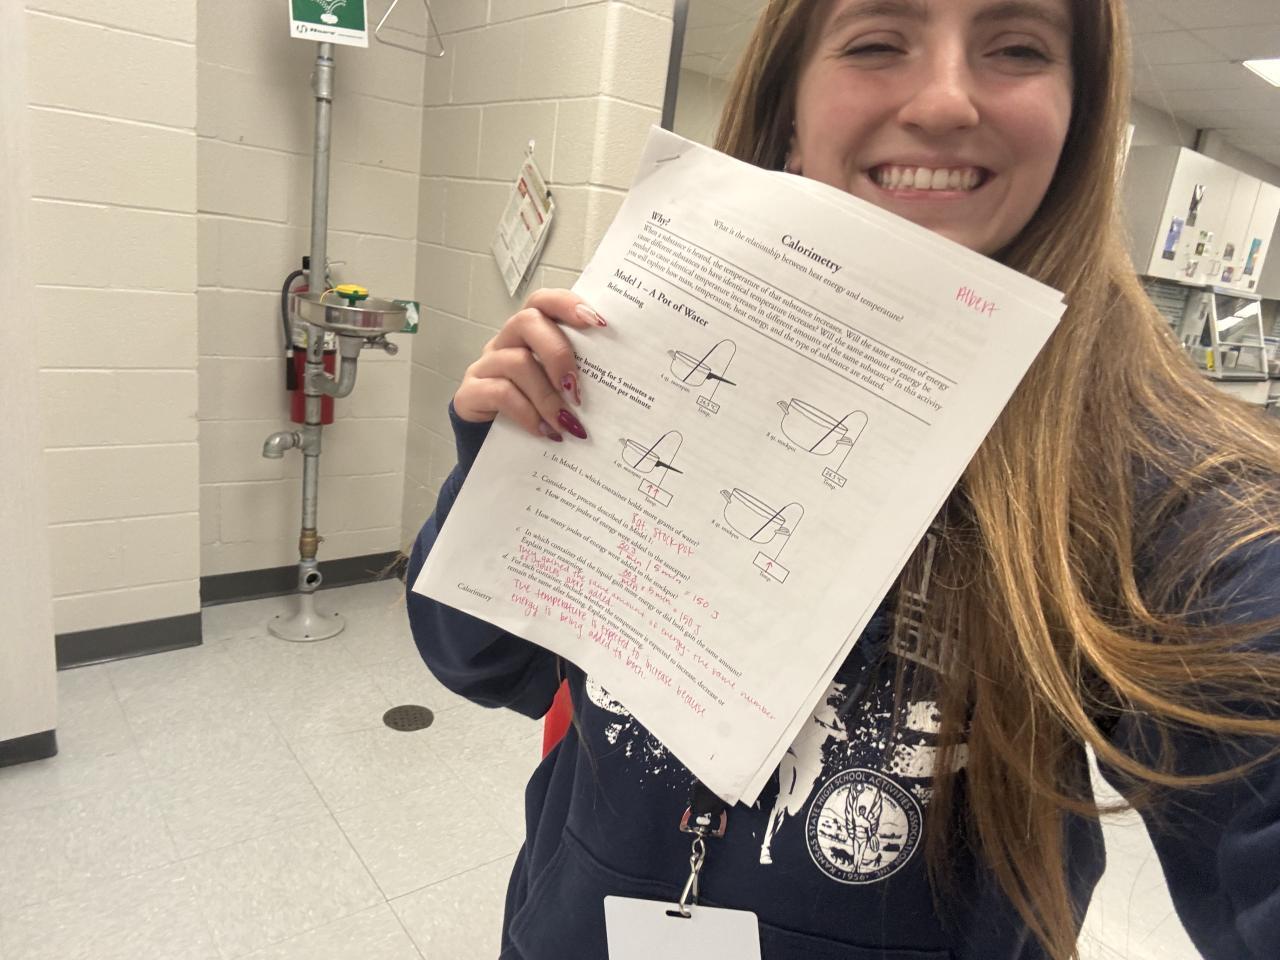 Calorimetry
What is the relationship between heat energy and temperature?
Albert
Why?
When a substance is heated, the temperature of that substance increases. Will the same amount of energy
cause different substances to have identical temperature increases? Will the same amount of energy be
needed to cause identical temperature increases in different amounts of the same substance? In this activity
you will explore how mass, temperature, heat energy, and the type of substance are related.
Model 1 – A Pot of Water
Before heating
4 qt. saucepan
24.5 °C
Temp.
8 qt. stockpot
24.5 °C
Temp.
heating for 5 minutes at
of 30 Joules per minute
4 qt. saucepan
Temp.
8 qt. stockpot
Temp.
1. In Model 1, which container holds more grams of water?
8qt. stockpot
2. Consider the process described in Model 1.
a. How many joules of energy were added to the saucepan?
5 min = 150 J
b. How many joules of energy were added to the stockpot?
5 min = 150 J
c. In which container did the liquid gain more energy or did both gain the same amount?
Explain your reasoning.
They gained the same amount of energy - the same number
of joules were added.
d. For each container, include whether the temperature is expected to increase, decrease or
remain the same after heating. Explain your reasoning.
The temperature is expected to increase because
energy is being added to both.
Calorimetry
1
KANSAS STATE HIGH SCHOOL ACTIVITIES ASSOCIATION, INC.
1956